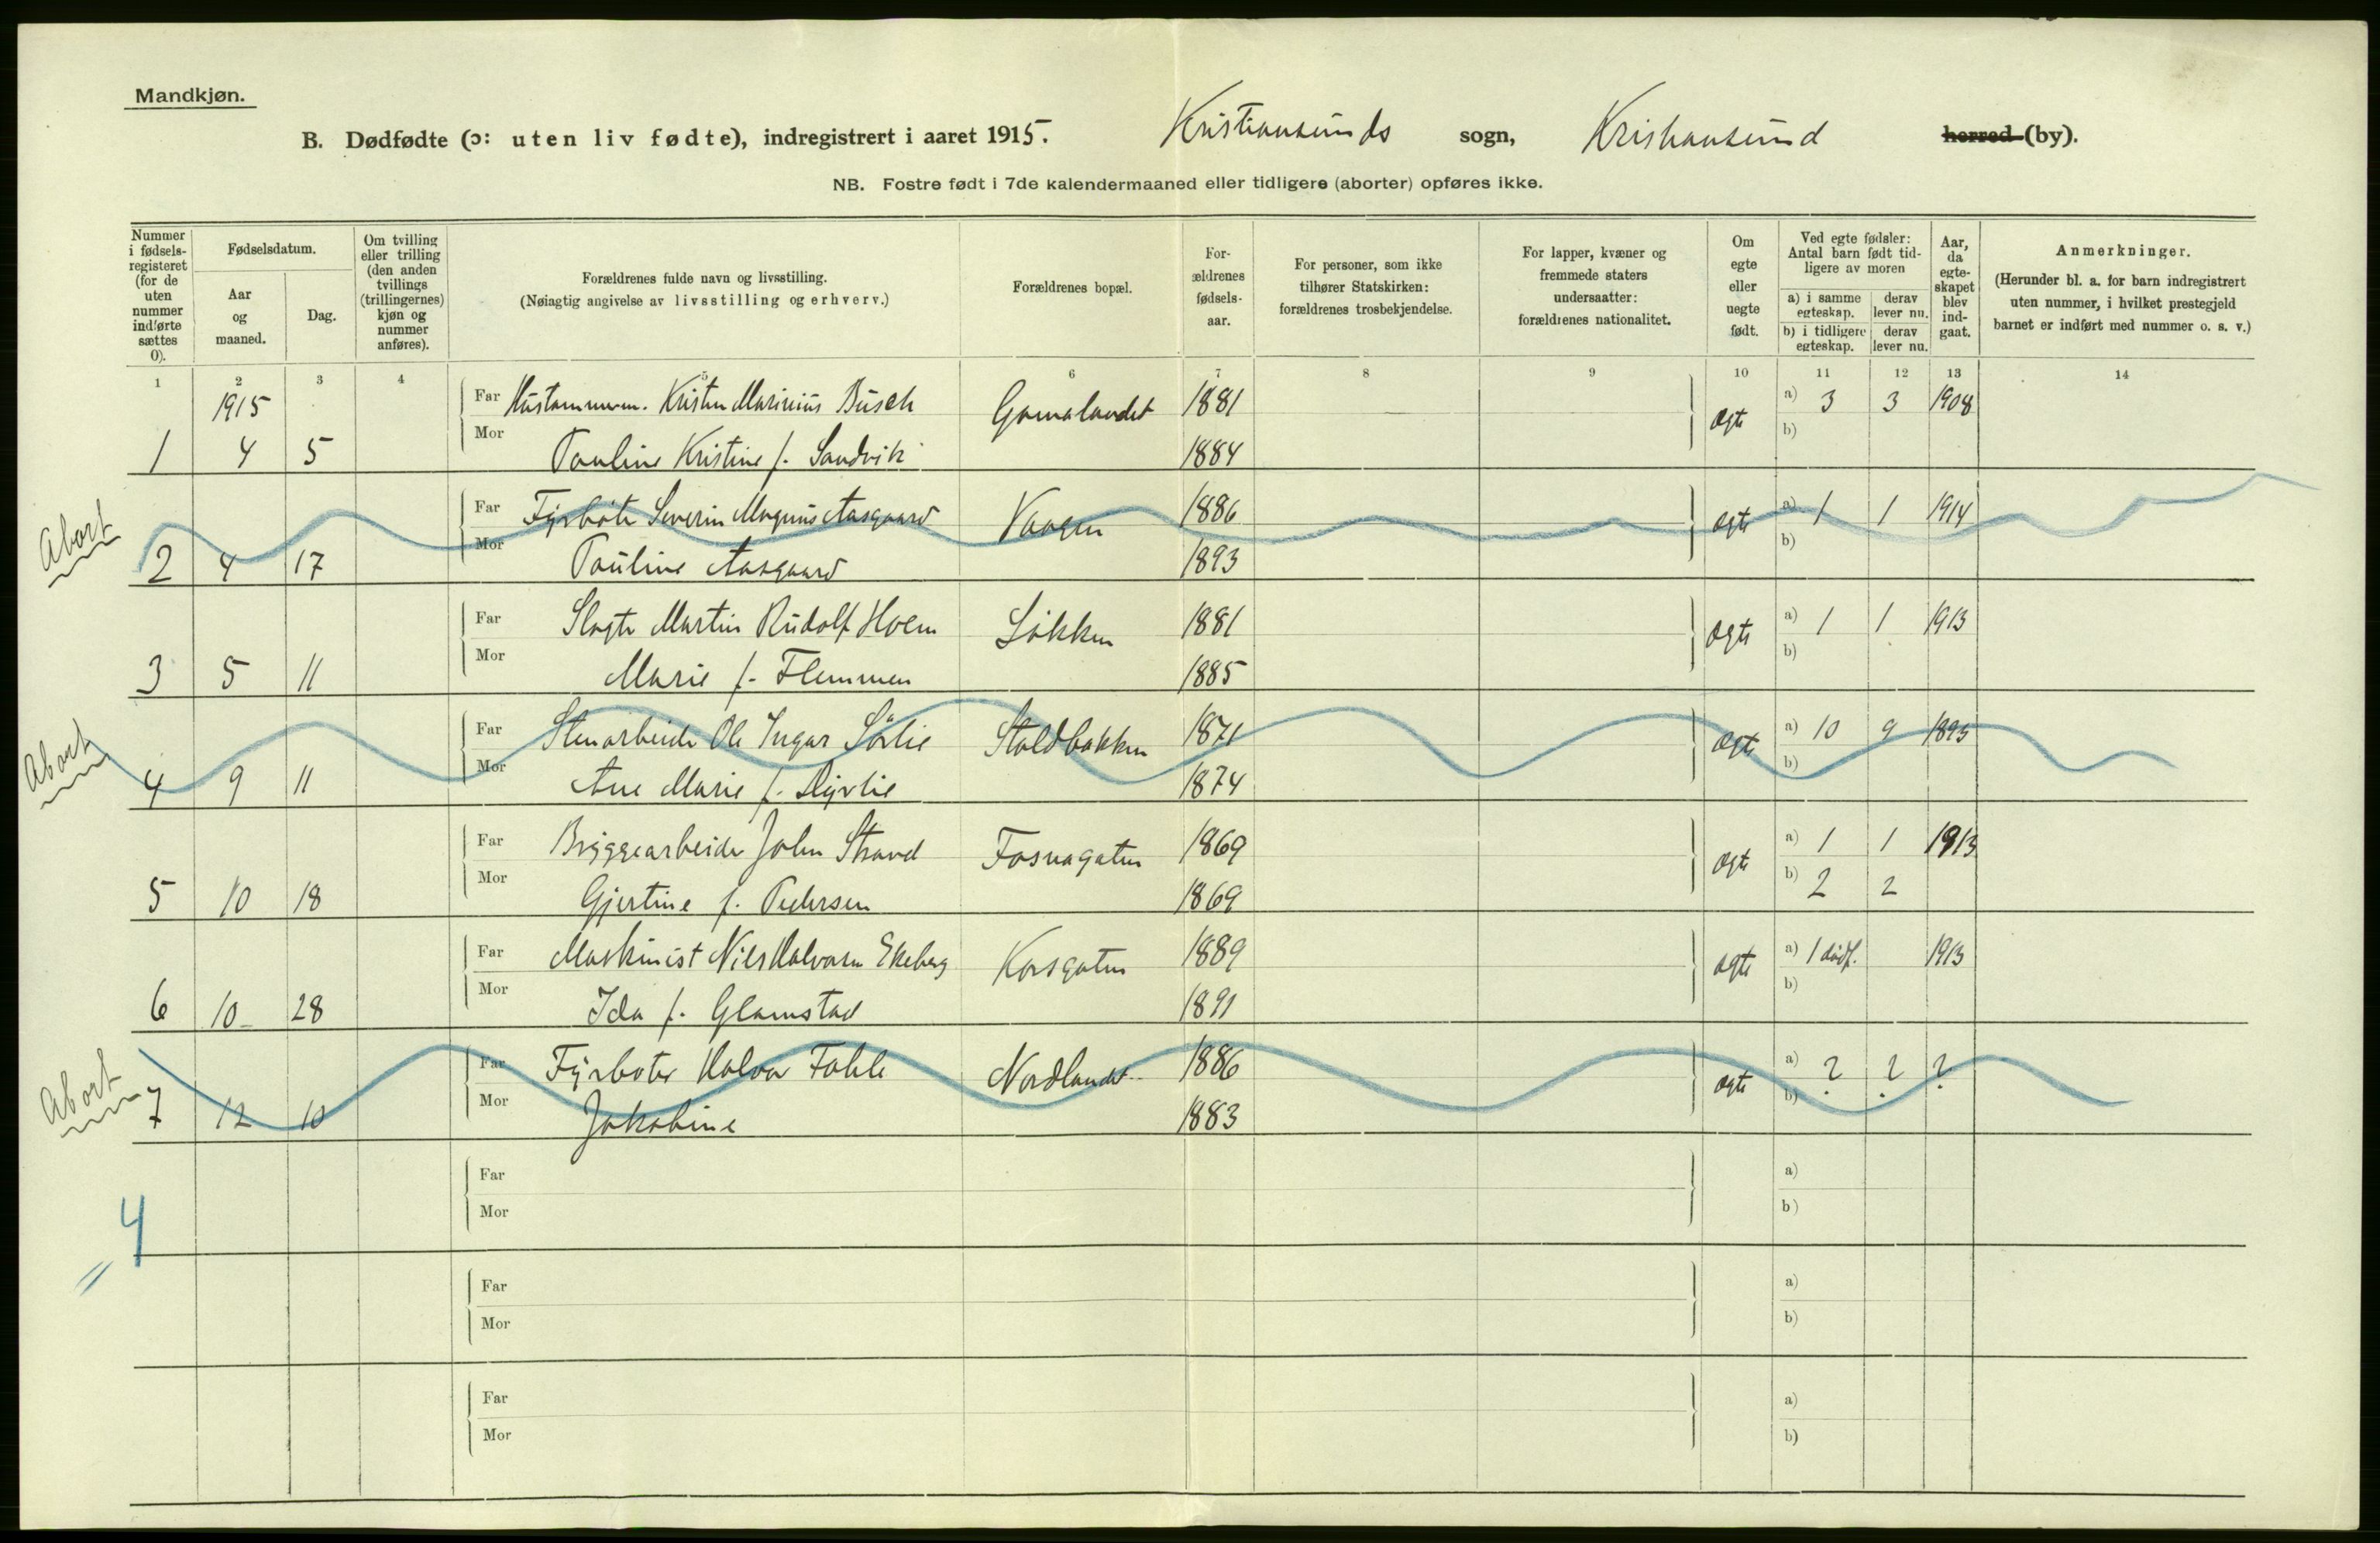 Mandkjøn.
B. Dødfødte (ɔ: uten liv fødte), indregistrert i aaret 1915. Kristiansunds sogn, Kristiansund herred (by).
NB. Fostre født i 7de kalendermaaned eller tidligere (aborter) opføres ikke.
Nummer i fødsels-registeret (for de uten nummer indførte sættes 0).
Fødselsdatum.
Aar og maaned.
Dag.
Om tvilling eller trilling (den anden tvillings (trillingernes) kjøn og nummer anføres).
Forældrenes fulde navn og livsstilling.
(Nøiagtig angivelse av livsstilling og erhverv.)
Forældrenes bopæl.
For-ældrenes fødsels-aar.
For personer, som ikke tilhører Statskirken: forældrenes trosbekjendelse.
For lapper, kvæner og fremmede staters undersaatter: forældrenes nationalitet.
Om egte eller uegte født.
Ved egte fødsler: Antal barn født tid-ligere av moren
a) i samme egteskap.
derav lever nu.
b) i tidligere egteskap.
derav lever nu.
Aar, da egte-skapet blev ind-gaat.
Anmerkninger.
(Herunder bl. a. for barn indregistrert uten nummer, i hvilket prestegjeld barnet er indført med nummer o. s. v.)
1 2 3 4 5 6 7 8 9 10 11 12 13 14
1915
Far Kristen Marinius Busch Gomalandet 1881 Ægte a) 3 3 1908
1 4 5 Mor Pauline Kristine f. Sandvik 1884 b)
Abort
Far Fyrbøter Severin Magnus Aasgaard Vaagen 1886 Ægte a) 1 1 1914
2 4 17 Mor Pauline Aasgaard 1893 b)
Far Slagter Martin Rudolf Hoem Løkken 1881 Ægte a) 1 1 1913
3 5 11 Mor Marie f. Flemmen 1885 b)
Abort
Far Stenarbeider Ole Ingar Sørlie Staldbakken 1871 Ægte a) 10 9 1895
4 9 11 Mor Ane Marie f. 1874 b)
Far Bryggearbeider John Strand Fosnagaten 1869 Ægte a) 1 1 1913
5 10 18 Mor Gjertine f. Pedersen 1869 b) 2 2
Far Maskinist Nils Halvorsen Ekeberg Korsgaten 1889 Ægte a) 1 dødf. 1913
6 10 28 Mor Ida f. Glamstad 1891 b)
Abort
Far Fyrbøter Halvor Fahle Nordlandet 1886 Ægte a) ? ? ?
7 12 10 Mor Jakobine 1883 b)
Far a)
Mor b)
4
Far a)
Mor b)
Far a)
Mor b)